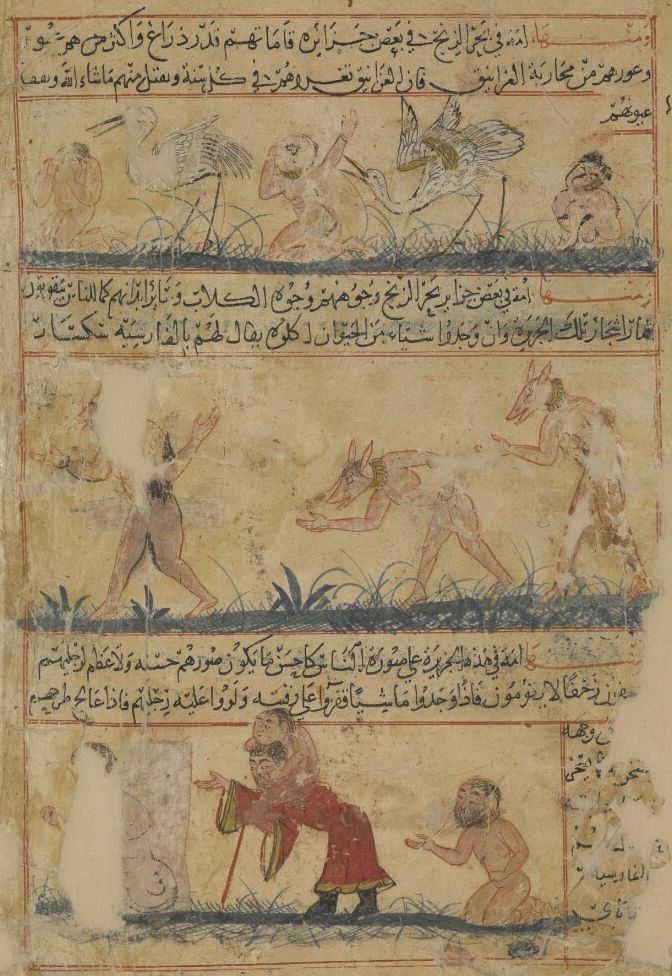 ومنها امة في بحر الزنج في بعض جزائره قاماتهم قدر ذراع واكثرهم عور
وعورهم من محاربة الغرانيق فان الغرانيق في كل سنة ويقتل منهم ماشاء الله
عيونهم
ومنها امة في بعض جزاير بحر الزنج وجوههم وجوه الكلاب وسائر ابدانهم كما للناس يتقوتون
اشجار تلك الجزيرة وان وجدوا شياء من الحيوان اكلوه يقال لهم بالفارسيه سكسار
امة في هذه الجزيرة على صورة الناس كاحسن ما يكون صورهم حسنه ولا عظام لرجليهم
زحفا لا يقومون فاذا وجدوا ماشيا قفزوا على رقبته ولووا عليه رجليهم فاذا عالج طرحهم
وجهه